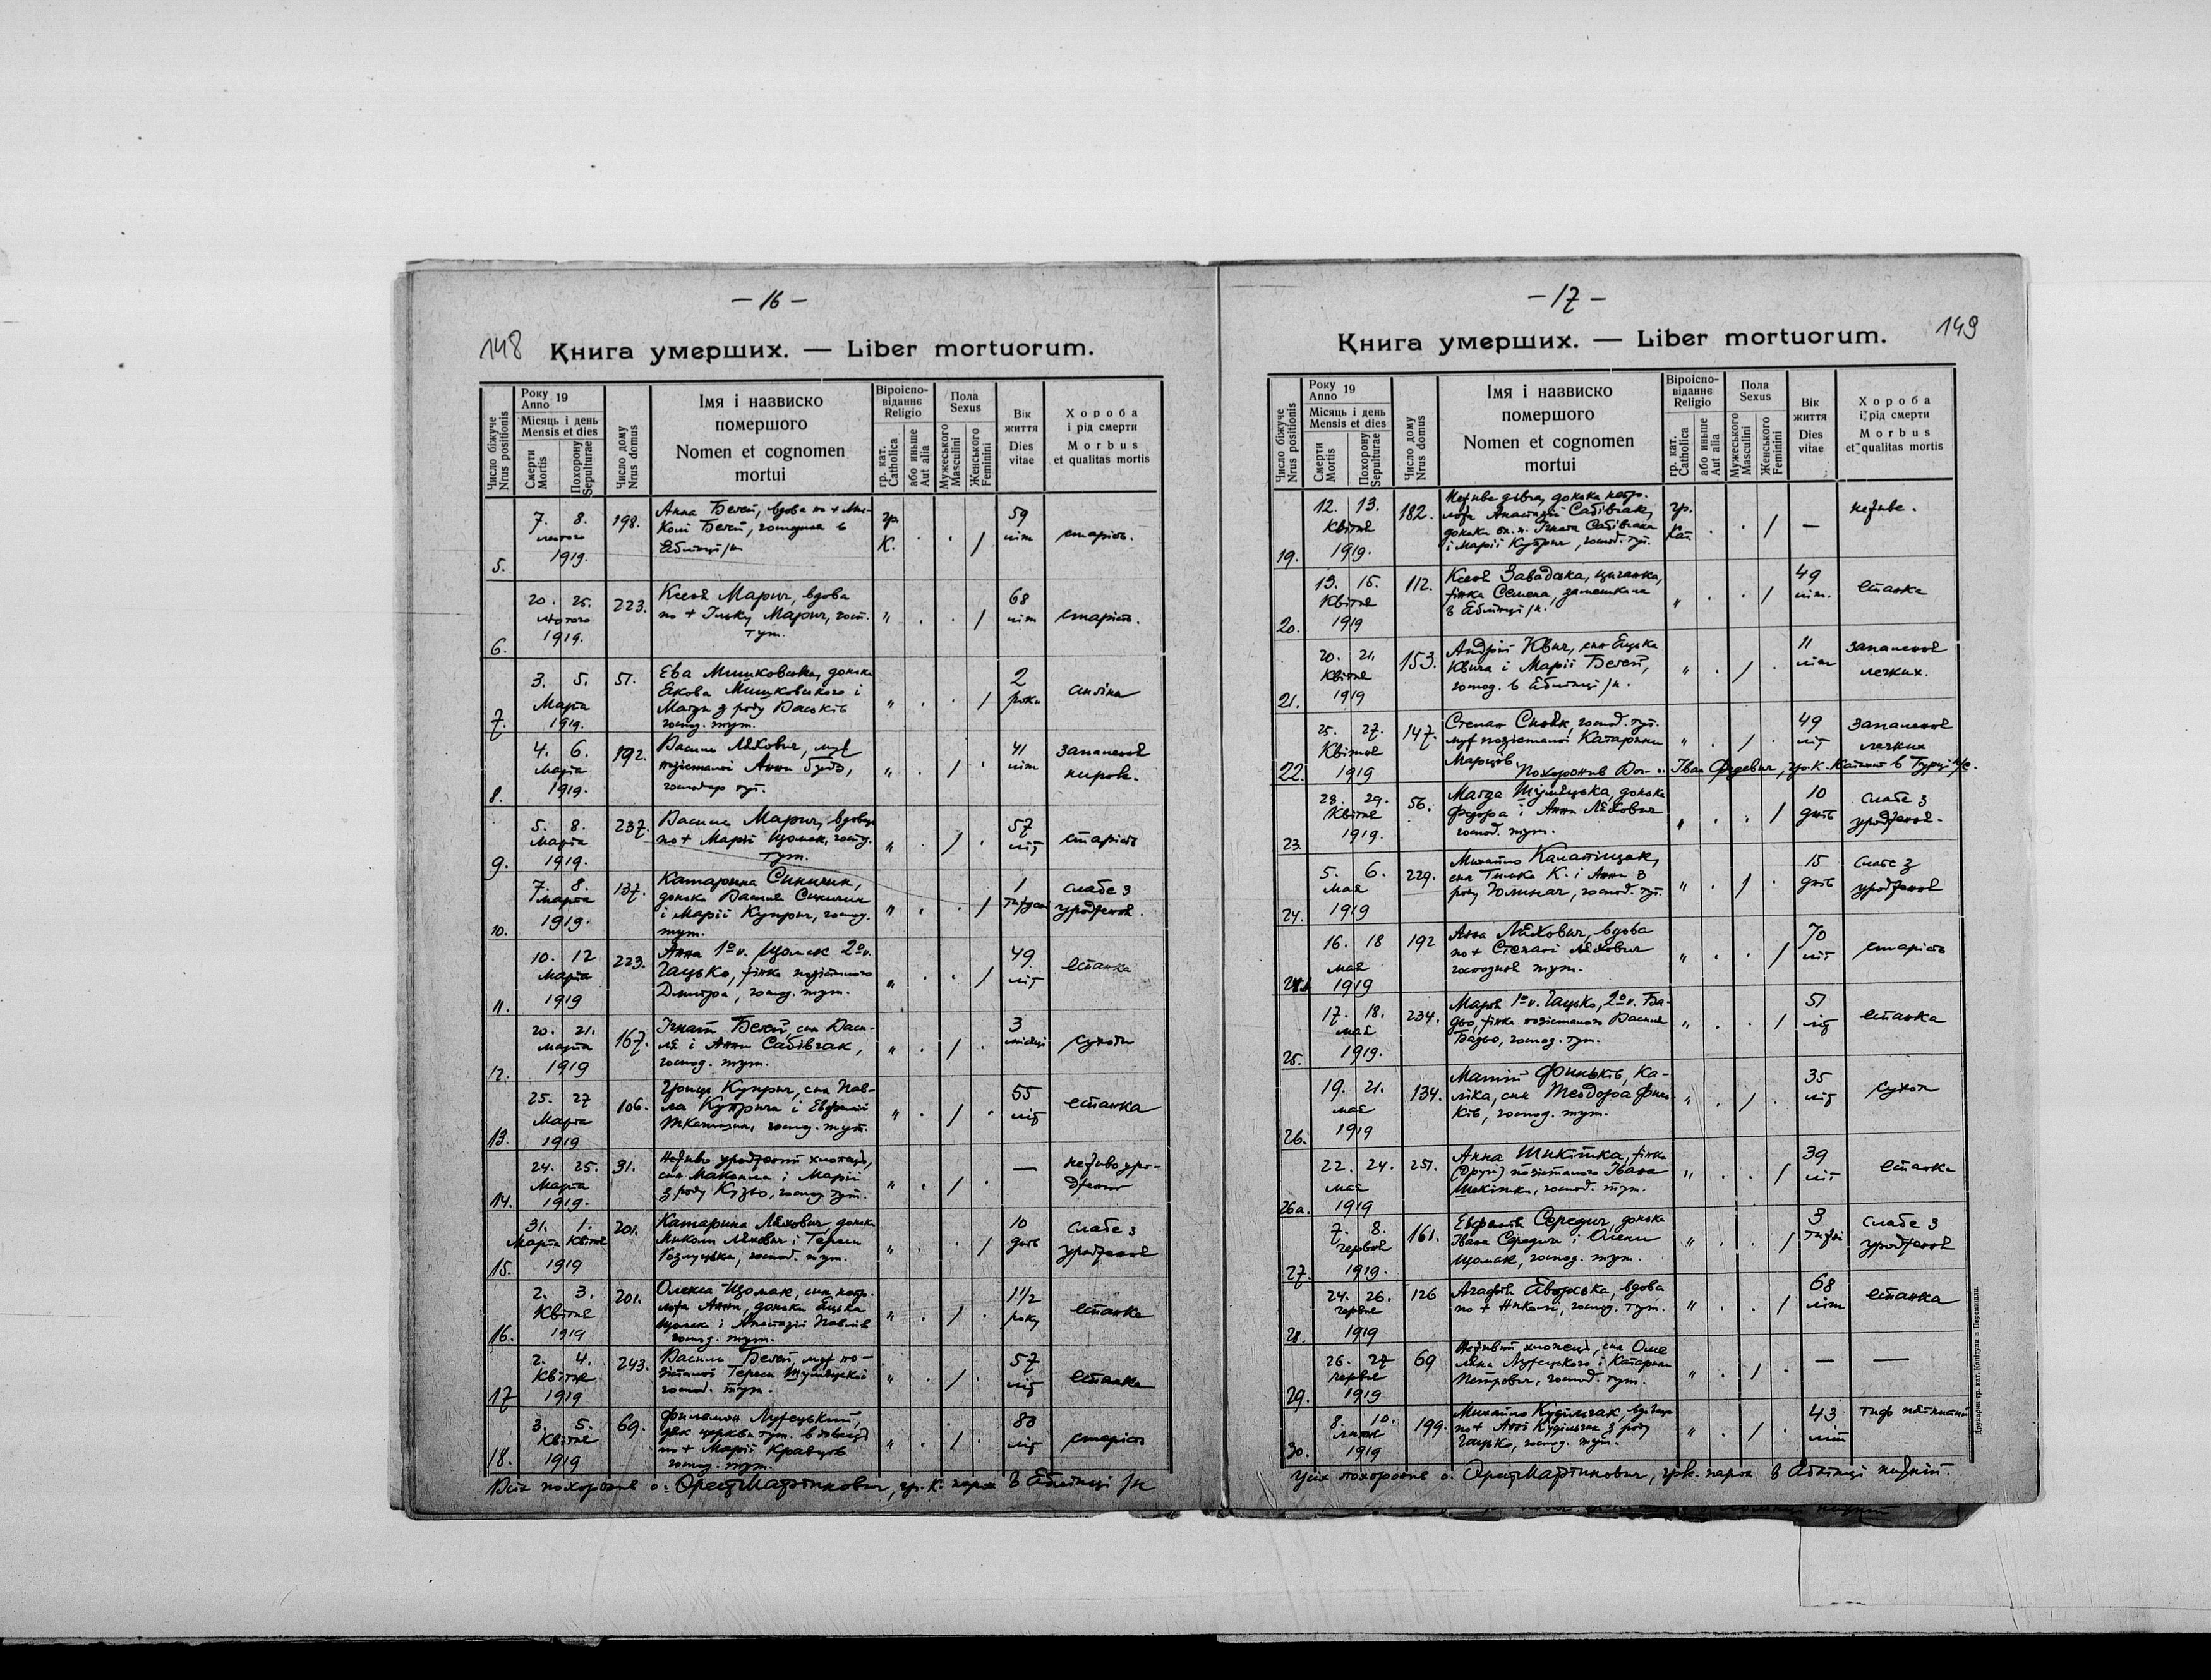 — 16 —
148
Книга умерших. — Liber mortuorum.
Число біжуче
Nrus positionis
Року
Anno 19
Місяць і день
Mensis et dies
Смерти
Mortis
Похорону
Sepulturae
Число дому
Nrus domus
Імя і назвиско
помершого
Nomen et cognomen
mortui
Віроіспо-
віданнє
Religio
гр. кат.
Catholica
або иньше
Aut alia
Пола
Sexus
Мужеського
Masculini
Женського
Feminini
Вік
життя
Dies
vitae
Хороба
і рід смерти
Morbus
et qualitas mortis
5.
7. 8.
лютого
1919.
198.
Анна Белей, вдова по + Ми-
коли Белей,
гр.
к.
/
59
літ
старість.
6.
20. 25.
лютого
1919.
223.
Ксеня Марич, вдова
по + Ількy Марич, госп.
тут.
"
/
68
літ
старість.
7.
3. 5.
Марта
1919.
51.
Ева Мишковська, донька
Якова Мишковського і
Магди з роду Васьків
господ. тут.
"
/
2
роки
8.
4. 6.
Марта
1919.
192.
Василь Ляхович, муж
позісталої Анни
господар тут.
"
/
41
літ
запалення
нирок.
9.
5. 8.
Марта
1919.
237.
Василь Марич, вдовець
по + Марії Щомак, господ.
тут.
"
/
57
літ
старість
10.
7. 8.
марта
1919.
137.
Катарина Сикичин,
донька Василя Сикичин
і Марії Куприч, господ.
тут.
"
/
1
слабе з
уродженя.
11.
10. 12
Марта
1919
223.
Анна 1º v. Щомак 2º v.
Гацько, жінка позісталого
Дмитра, господ. тут.
"
/
49
літ
еспанка
12.
20. 21.
марта
1919
167.
Ігнат Белей, син Васи-
ля і Анни Сабівчак,
господ. тут.
"
/
3
місяці
сухоти
13.
25. 27
Марта
1919
106.
Гриць Куприч, син Пав-
ла Куприча і Евфемії
господ. тут.
"
/
55
літ
еспанка
14.
24. 25.
Марта
1919.
31.
Неживо уроджений хлопець,
син Максима і Марії
з роду Кузьо, господ. тут.
"
/
—
неживо уро-
джений
15.
31. 1.
Марта Квітня
1919
201.
Катарина Ляхович, донька
Миколи Ляхович і Тереси
Розлуцька, господ. тут.
"
/
10
днів
слабе з
уродженя
16.
2. 3.
Квітня
1919
201.
Олекса Щомак, син непр.
ложа Анни, донька Яцька
Щомака і Анастазії Павлів
господ. тут.
"
/
1 1/2
року
еспанка
17
2. 4.
Квітня
1919
243.
Василь Белей, муж по-
зісталої Тереси Шумляцької
господ. тут.
"
/
57
літ
еспанка
18.
3. 5.
Квітня
1919
69.
Филемон Лужецький,
дяк церкви тут. вдовець
по + Марії Кравців
господ. тут.
"
/
80
літ
старість
Всіх похоронив о. Орест Мартинкович, гр. к. парох в Яблінці /н
— 17 —
149
Книга умерших. — Liber mortuorum.
Число біжуче
Nrus positionis
Року
Anno 19
Місяць і день
Mensis et dies
Смерти
Mortis
Похорону
Sepulturae
Число дому
Nrus domus
Імя і назвиско
помершого
Nomen et cognomen
mortui
Віроіспо-
віданнє
Religio
гр. кат.
Catholica
або иньше
Aut alia
Пола
Sexus
Мужеського
Masculini
Женського
Feminini
Вік
життя
Dies
vitae
Хороба
і рід смерти
Morbus
et qualitas mortis
19.
12. 13.
Квітня
1919.
182.
Нежива дівч., донька непр.
ложа Анастазії Сабівчак,
донька Ігната Сабівчака
і Марії Куприч, господ. тут.
гр.
кат
/
—
неживе.
20.
13. 15.
Квітня
1919
112.
Ксеня Завадська, циганка,
жінка Семена, замешкала
в Яблінці /н.
"
/
49
літ.
еспанка
21.
20. 21.
Квітня
1919
153.
Андрій Ювич, син Яцька
Ювича і Марії Белей,
господ. в Яблінці /н.
"
/
11
літ
запаленя
легких.
22.
25. 27.
Квітня
1919
147.
Степан Сновк, господ. тут.
муж позісталої Катарини
Марців.
Похоронив Іван Федевич, гр. к. в Турці
"
/
49
літ
запаленя
легких
23.
28. 29.
Квітня
1919.
56.
Магда Шумляцька, донька
Федора і Анни Ляхович
господ. тут.
"
/
10
днів
слабе з
уродженя.
24.
5. 6.
мая
1919
229.
Михайло Калатинчак,
син Тимка К. і Анни з
роду господ. тут.
"
/
15
днів
слабе з
уродженя
16. 18
мая
1919
192
Анна Ляхович, вдова
по + Степані Ляхович
господиня тут.
"
/
70
літ
старість
25.
17. 18.
мая
1919.
234.
Марія 1º v. Гацько, 2º v. Ба-
дьо, жінка позісталого Василя
Бадьо, господ. тут.
"
/
51
літ
еспанка
26.
19. 21.
мая
1919
134.
Матій Финьків, ка-
ліка, син Теодора Финь-
ків, господ. тут.
"
/
35
літ
сухоти
26a.
22. 24.
мая
1919
251.
Анна Шикітка, жінка
(друга) позісталого Івана
Шикітки, господ. тут.
"
/
39
літ
еспанка
27.
7. 8.
червня
1919.
161.
Евфемія Середич, донька
Івана Середича і Олени
Щомак, господ. тут.
"
/
3
тижні
слабе з
уродженя
28.
24. 26.
червня
1919
126
Агафія Яворська, вдова
по + Николі, господ. тут.
"
/
68
літ
еспанка
29.
26. 27
червня
1919
69
Неживий хлопець, син Оме
ляна Лужецького і Катарини
Петрович, господ. тут.
"
/
—
—
30.
8. 10.
липня
1919
199.
Михайло Кудільчак, вдовець
по + Анні Кудільчак з роду
Гацько, господ. тут.
"
/
43
літ
тиф плямистий
Усіх похоронив о. Орест Мартинкович, гр.к. парох в Яблінці нижній.
Друкарня гр. кат. Капітули в Перемишли.